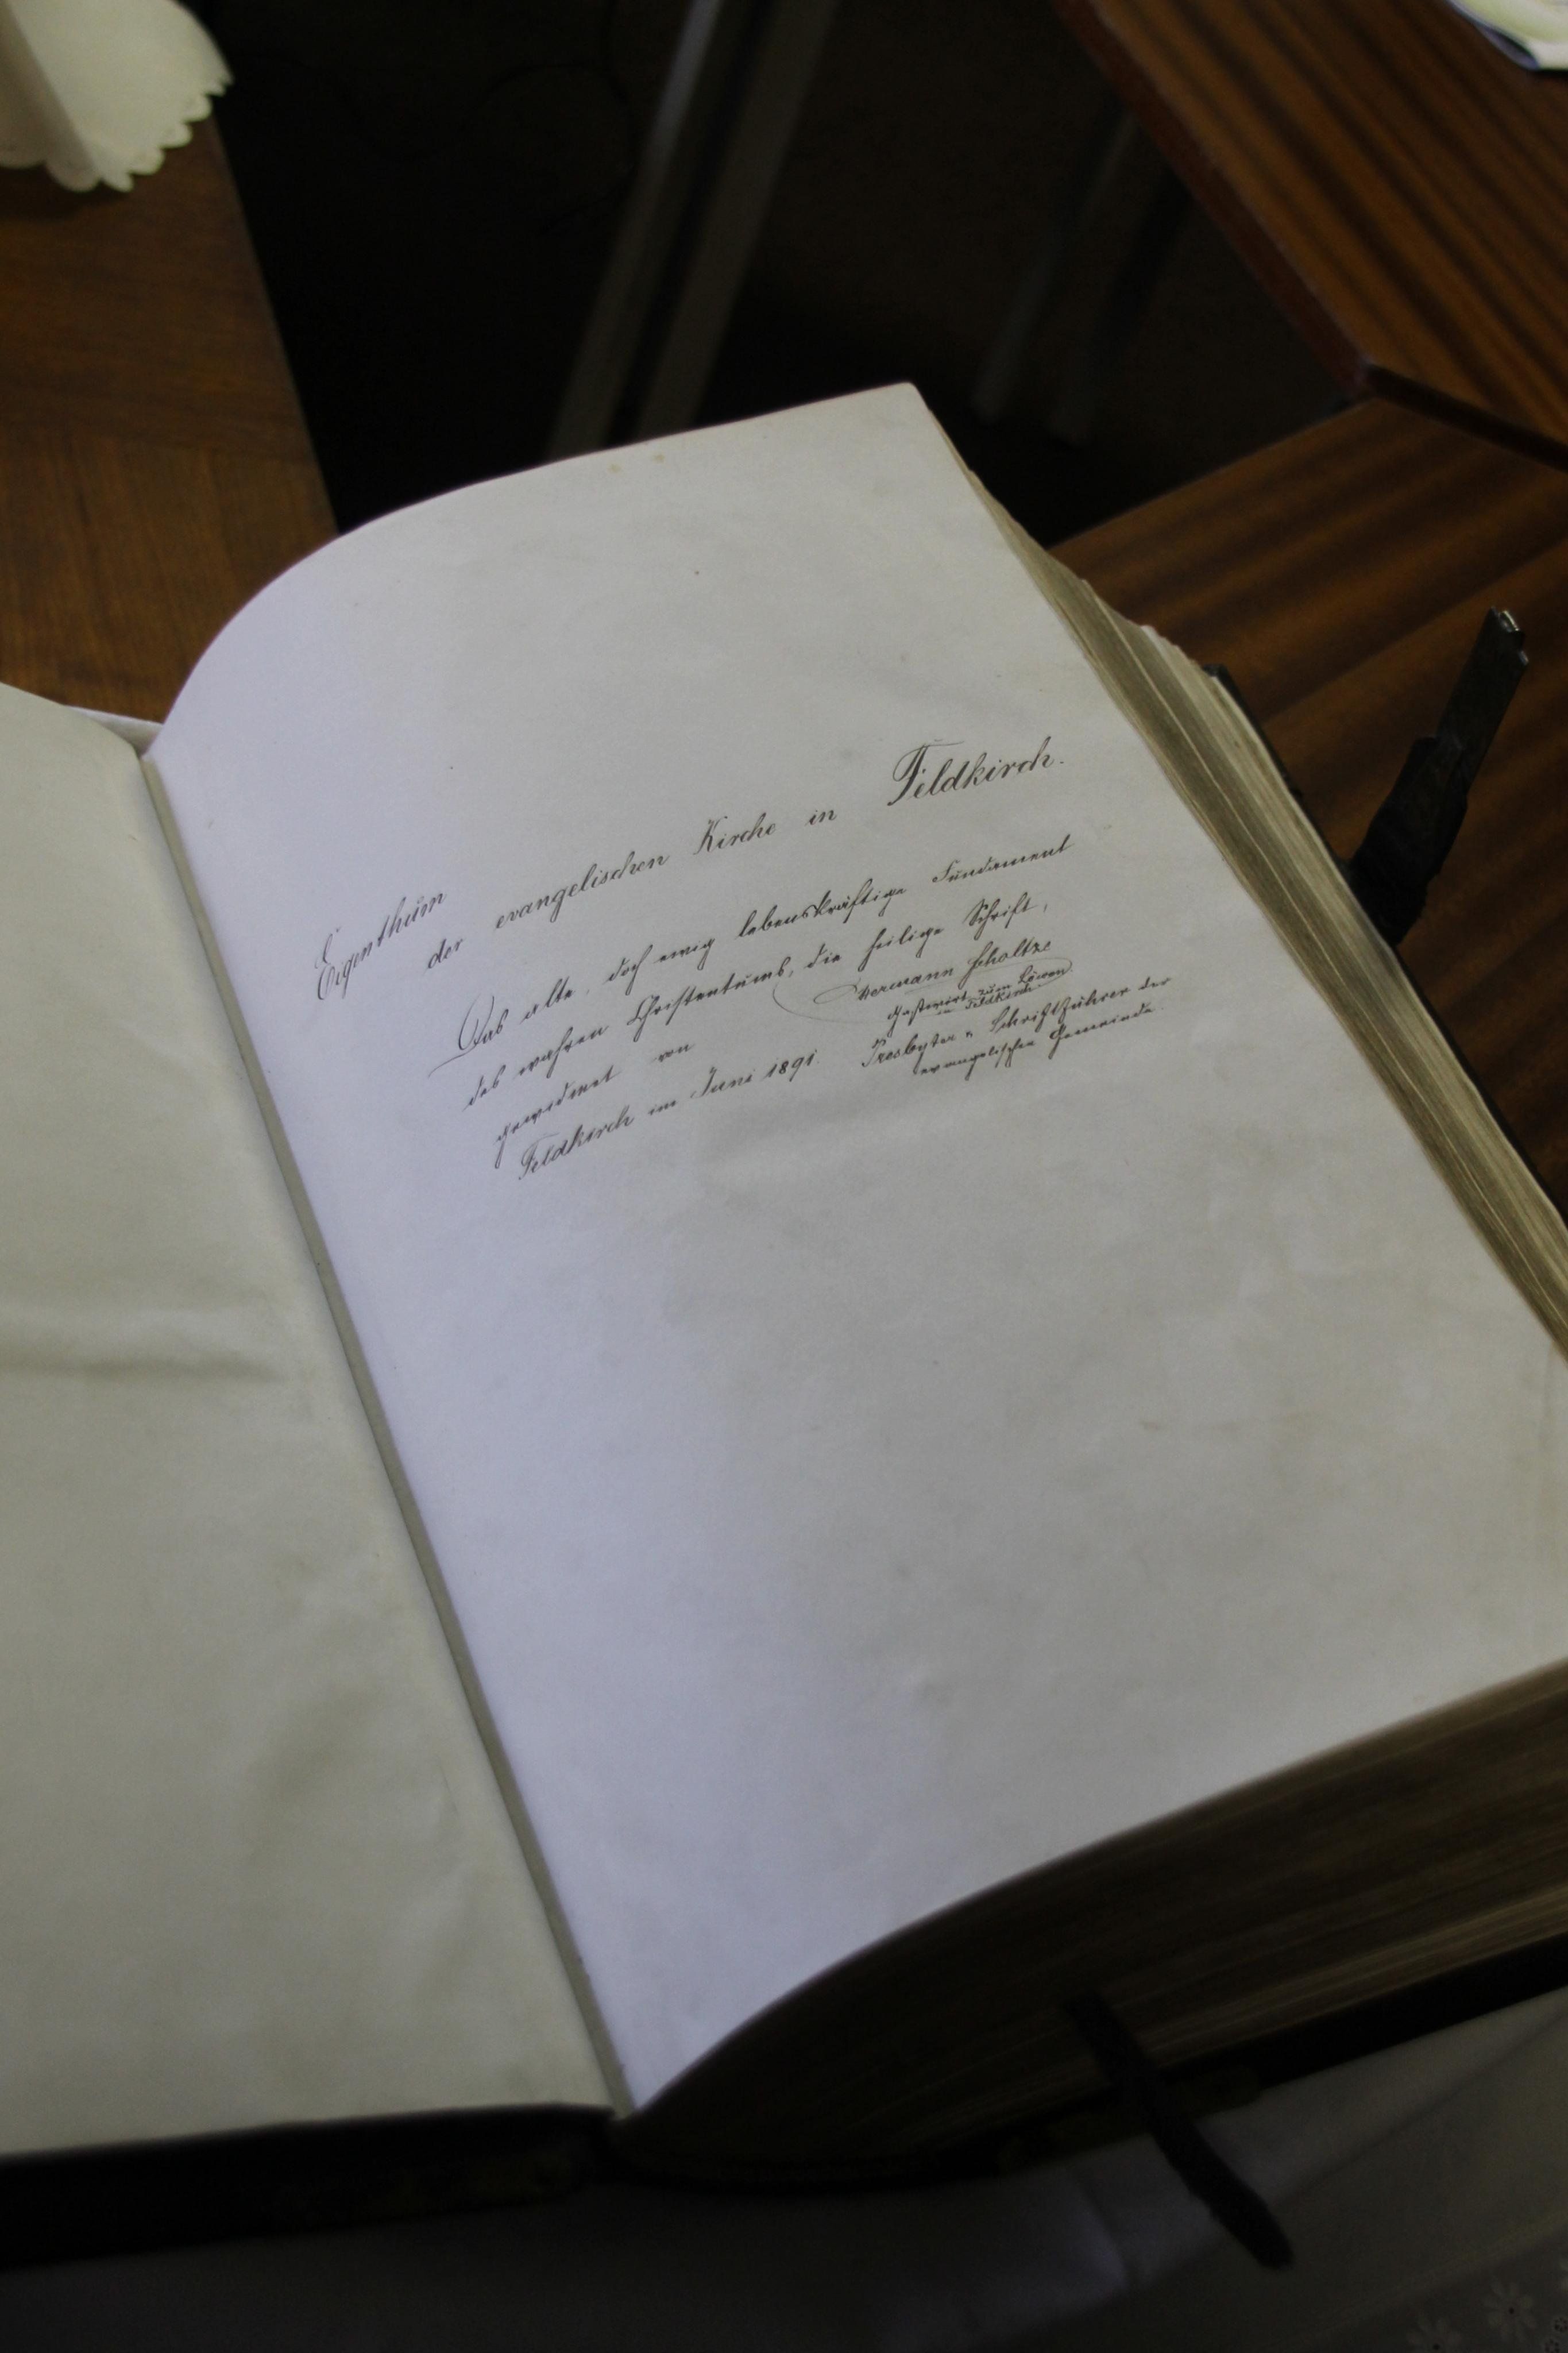 Eigenthum
der evangelischen Kirche in Feldkirch.
Das alte, doch ewig lebenskräftige Fundament
des wahren Christentums, die heilige Schrift,
gewidmet von
Hermann Scholtze
Gastwirt zum Löwen
in Feldkirch
Feldkirch im Juni 1891.
Presbyter u. Schriftführer der
evangelischen Gemeinde.